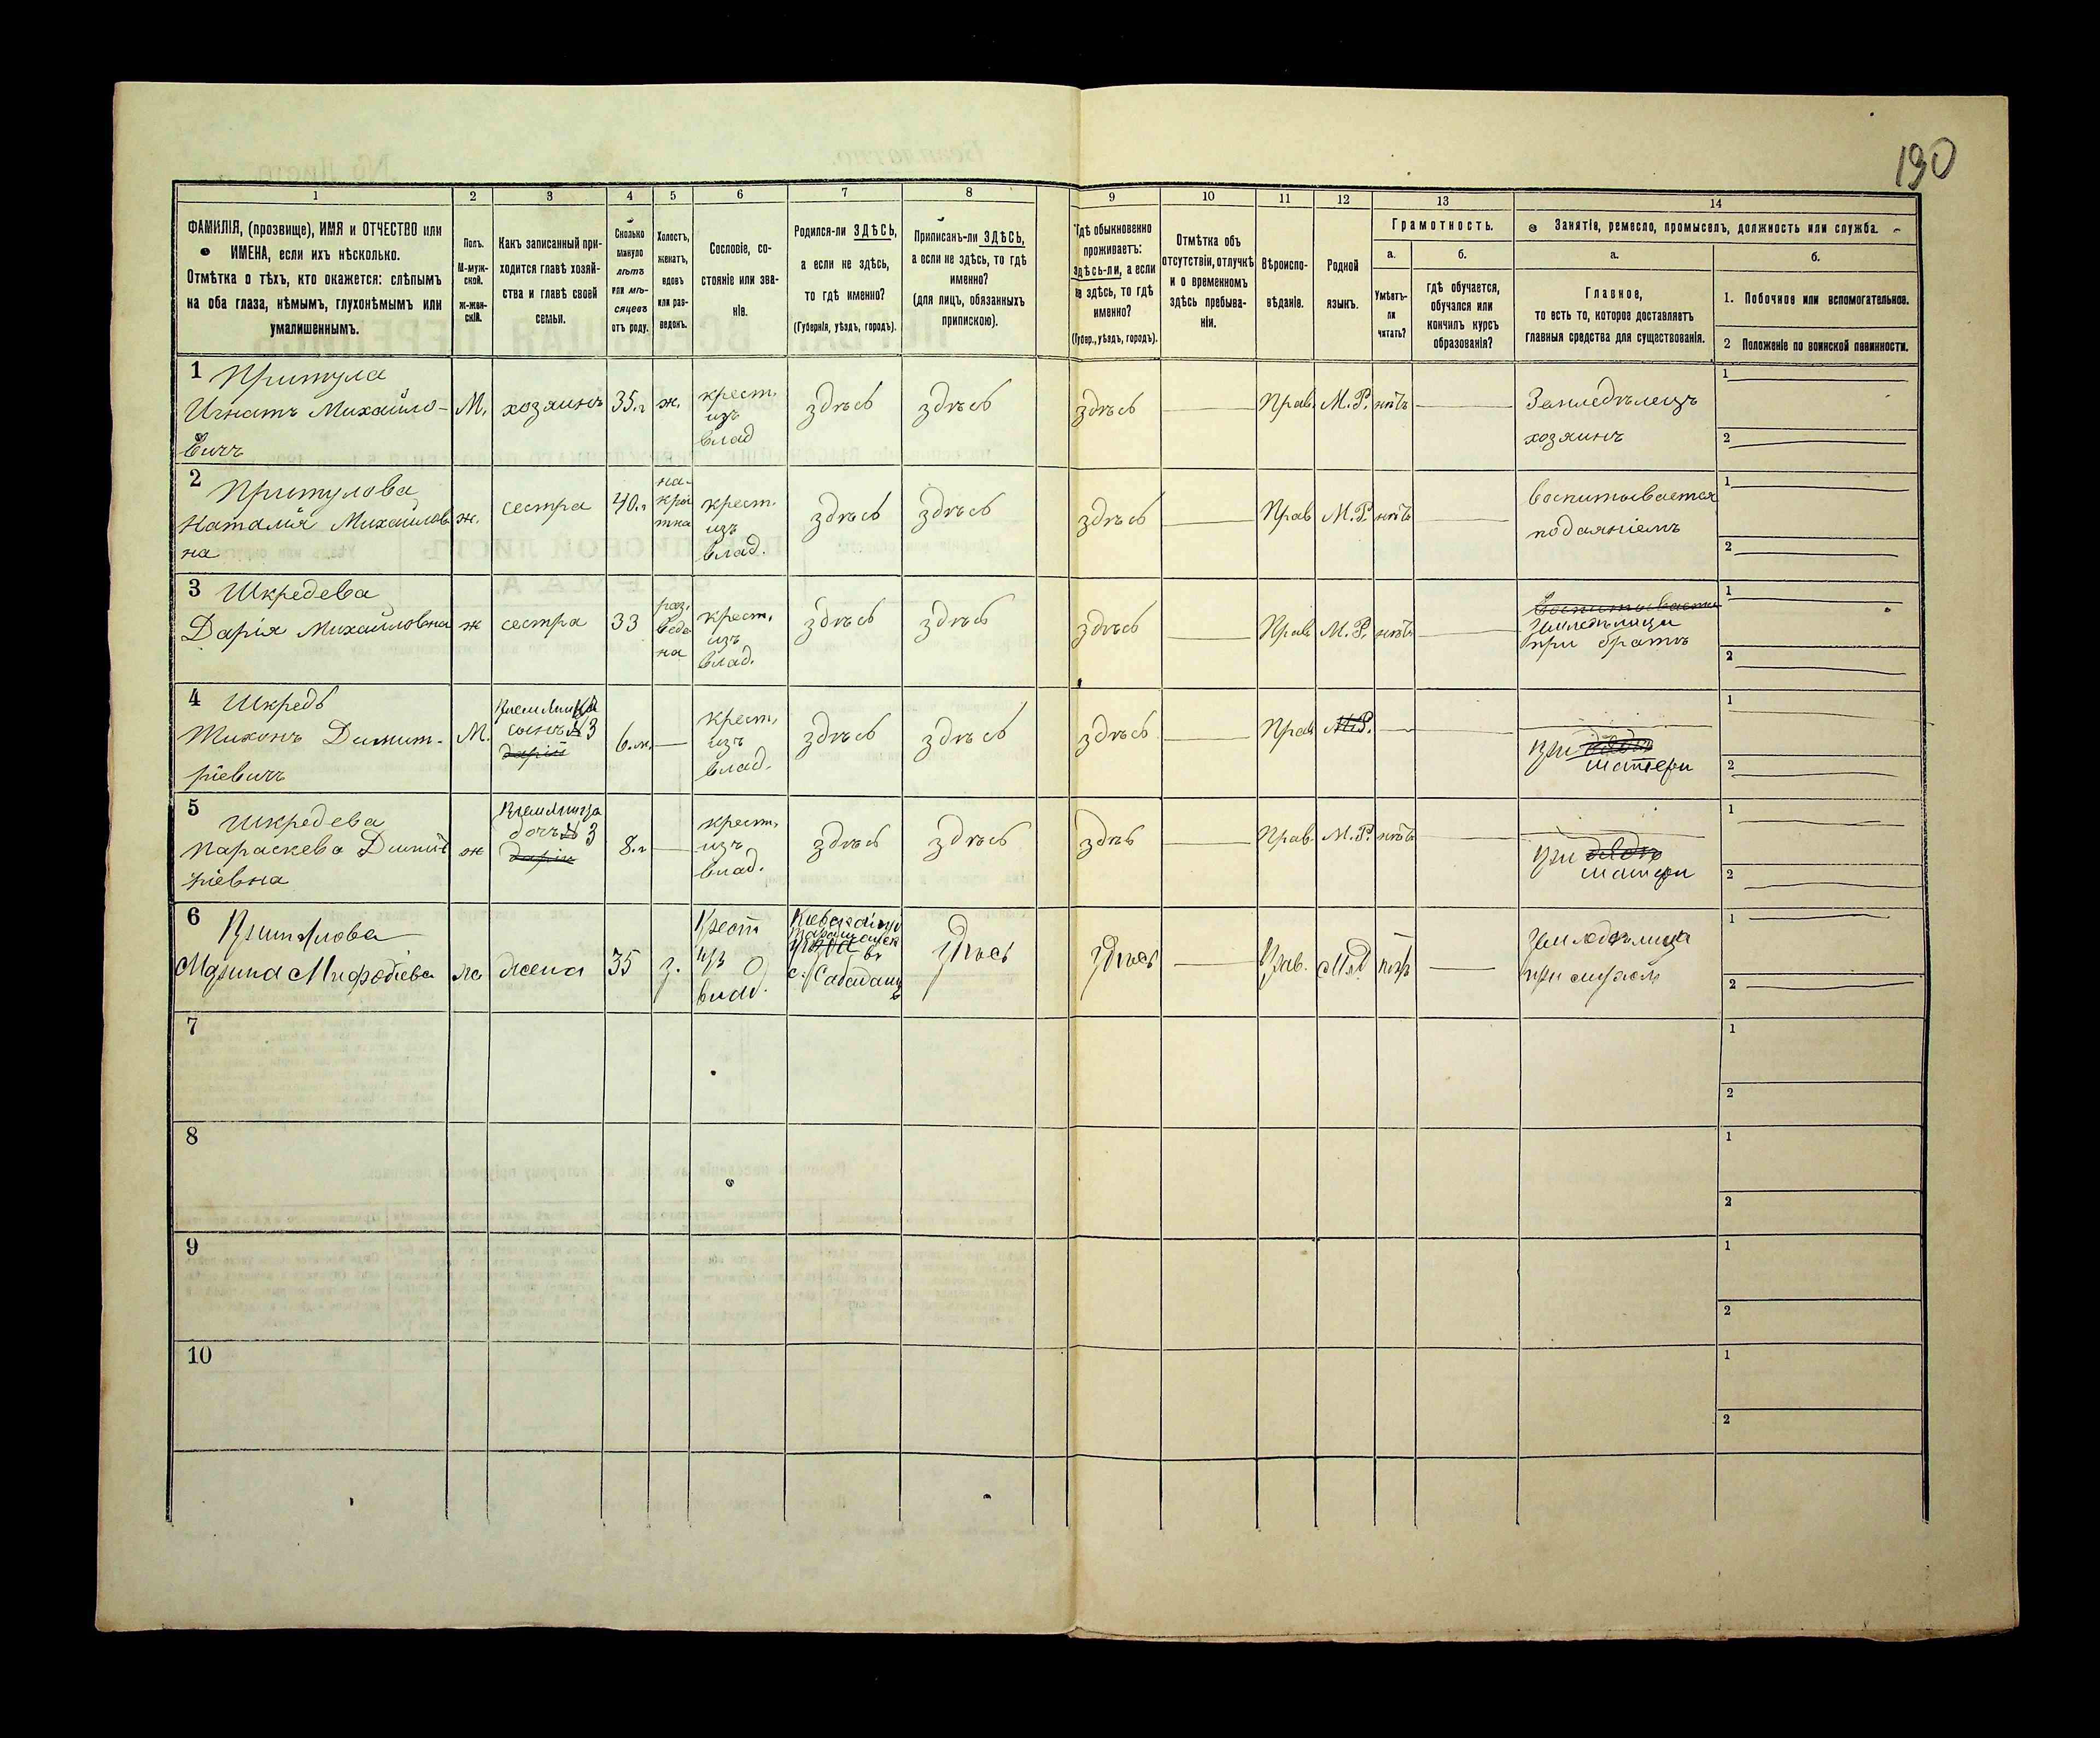 190
1 2 3 4 5 6 7 8 9 10 11 12 13 14
ФАМИЛІЯ, (прозвище), ИМЯ и ОТЧЕСТВО или
ИМЕНА, если ихъ нѣсколько.
Отмѣтка о тѣхъ, кто окажется: слѣпымъ
на оба глаза, нѣмымъ, глухонѣмымъ или
умалишеннымъ.
Полъ.
М-муж-
ской.
ж-жен-
скій.
Какъ записанный при-
ходится главѣ хозяй-
ства и главѣ своей
семьи.
Сколько
минуло
лѣтъ
или мѣ-
сяцевъ
отъ роду.
Холостъ,
женатъ,
вдовъ
или раз-
веденъ.
Сословіе, со-
стояніе или зва-
ніе.
Родился-ли ЗДѢСЬ,
а если не здѣсь,
то гдѣ именно?
(Губернія, уѣздъ, городъ).
Приписанъ-ли ЗДѢСЬ,
а если не здѣсь, то гдѣ
именно?
(для лицъ, обязанныхъ
припискою).
Гдѣ обыкновенно
проживаетъ:
здѣсь-ли, а если
не здѣсь, то гдѣ
именно?
(Губер., уѣздъ, городъ).
Отмѣтка объ
отсутствіи, отлучкѣ
и о временномъ
здѣсь пребыва-
ніи.
Вѣроиспо-
вѣданіе.
Родной
языкъ.
Грамотность.
а.
Умѣетъ-
ли
читать?
б.
гдѣ обучается,
обучался или
кончилъ курсъ
образованія?
Занятіе, ремесло, промыселъ, должность или служба.
а.
Главное,
то есть то, которое доставляетъ
главныя средства для существованія.
б.
1. Побочное или вспомогательное.
2 Положеніе по воинской повинности.
1 Притула
Игнатъ Михайло-
вичъ
М.
хозяинъ
35.г
ж.
крест.
изъ
влад
здѣсь
здѣсь
здѣсь
Прав.
М.Р.
нѣтъ
Земледѣлецъ
хозяинъ
1
2
2 Притулова
Наталія Михайлов
на
ж.
сестра
40.г
крест.
изъ
влад.
здѣсь
здѣсь
здѣсь
Прав
М.Р.
нѣтъ
воспитывается
подаяніемъ
1
2
3 Шкредева
Дарія Михайловна
ж
сестра
33
раз.
веде
на
крест.
изъ
влад.
здѣсь
здѣсь
здѣсь
Прав
М.Р.
нѣтъ
при братѣ
1
2
4 Шкредь
Тихонъ Димит-
ріевичъ
М.
сынъ 3
дарій
6.м.
крест.
изъ
влад.
здѣсь
здѣсь
здѣсь
Прав
М.Р.
при
матери
1
2
5
Шкредева
Параскева Димит
ріевна
ж
дочь 3
даріи
8.г
крест.
изъ
влад.
здѣсь
здѣсь
здѣь
Прав.
М.Р.
нѣтъ
при
матери
1
2
6
жена
35
Крест
изъ
влад.
здѣсь
здѣсь
Прав.
нѣтъ
1
2
7
1
2
8
1
2
9
1
2
10
1
2